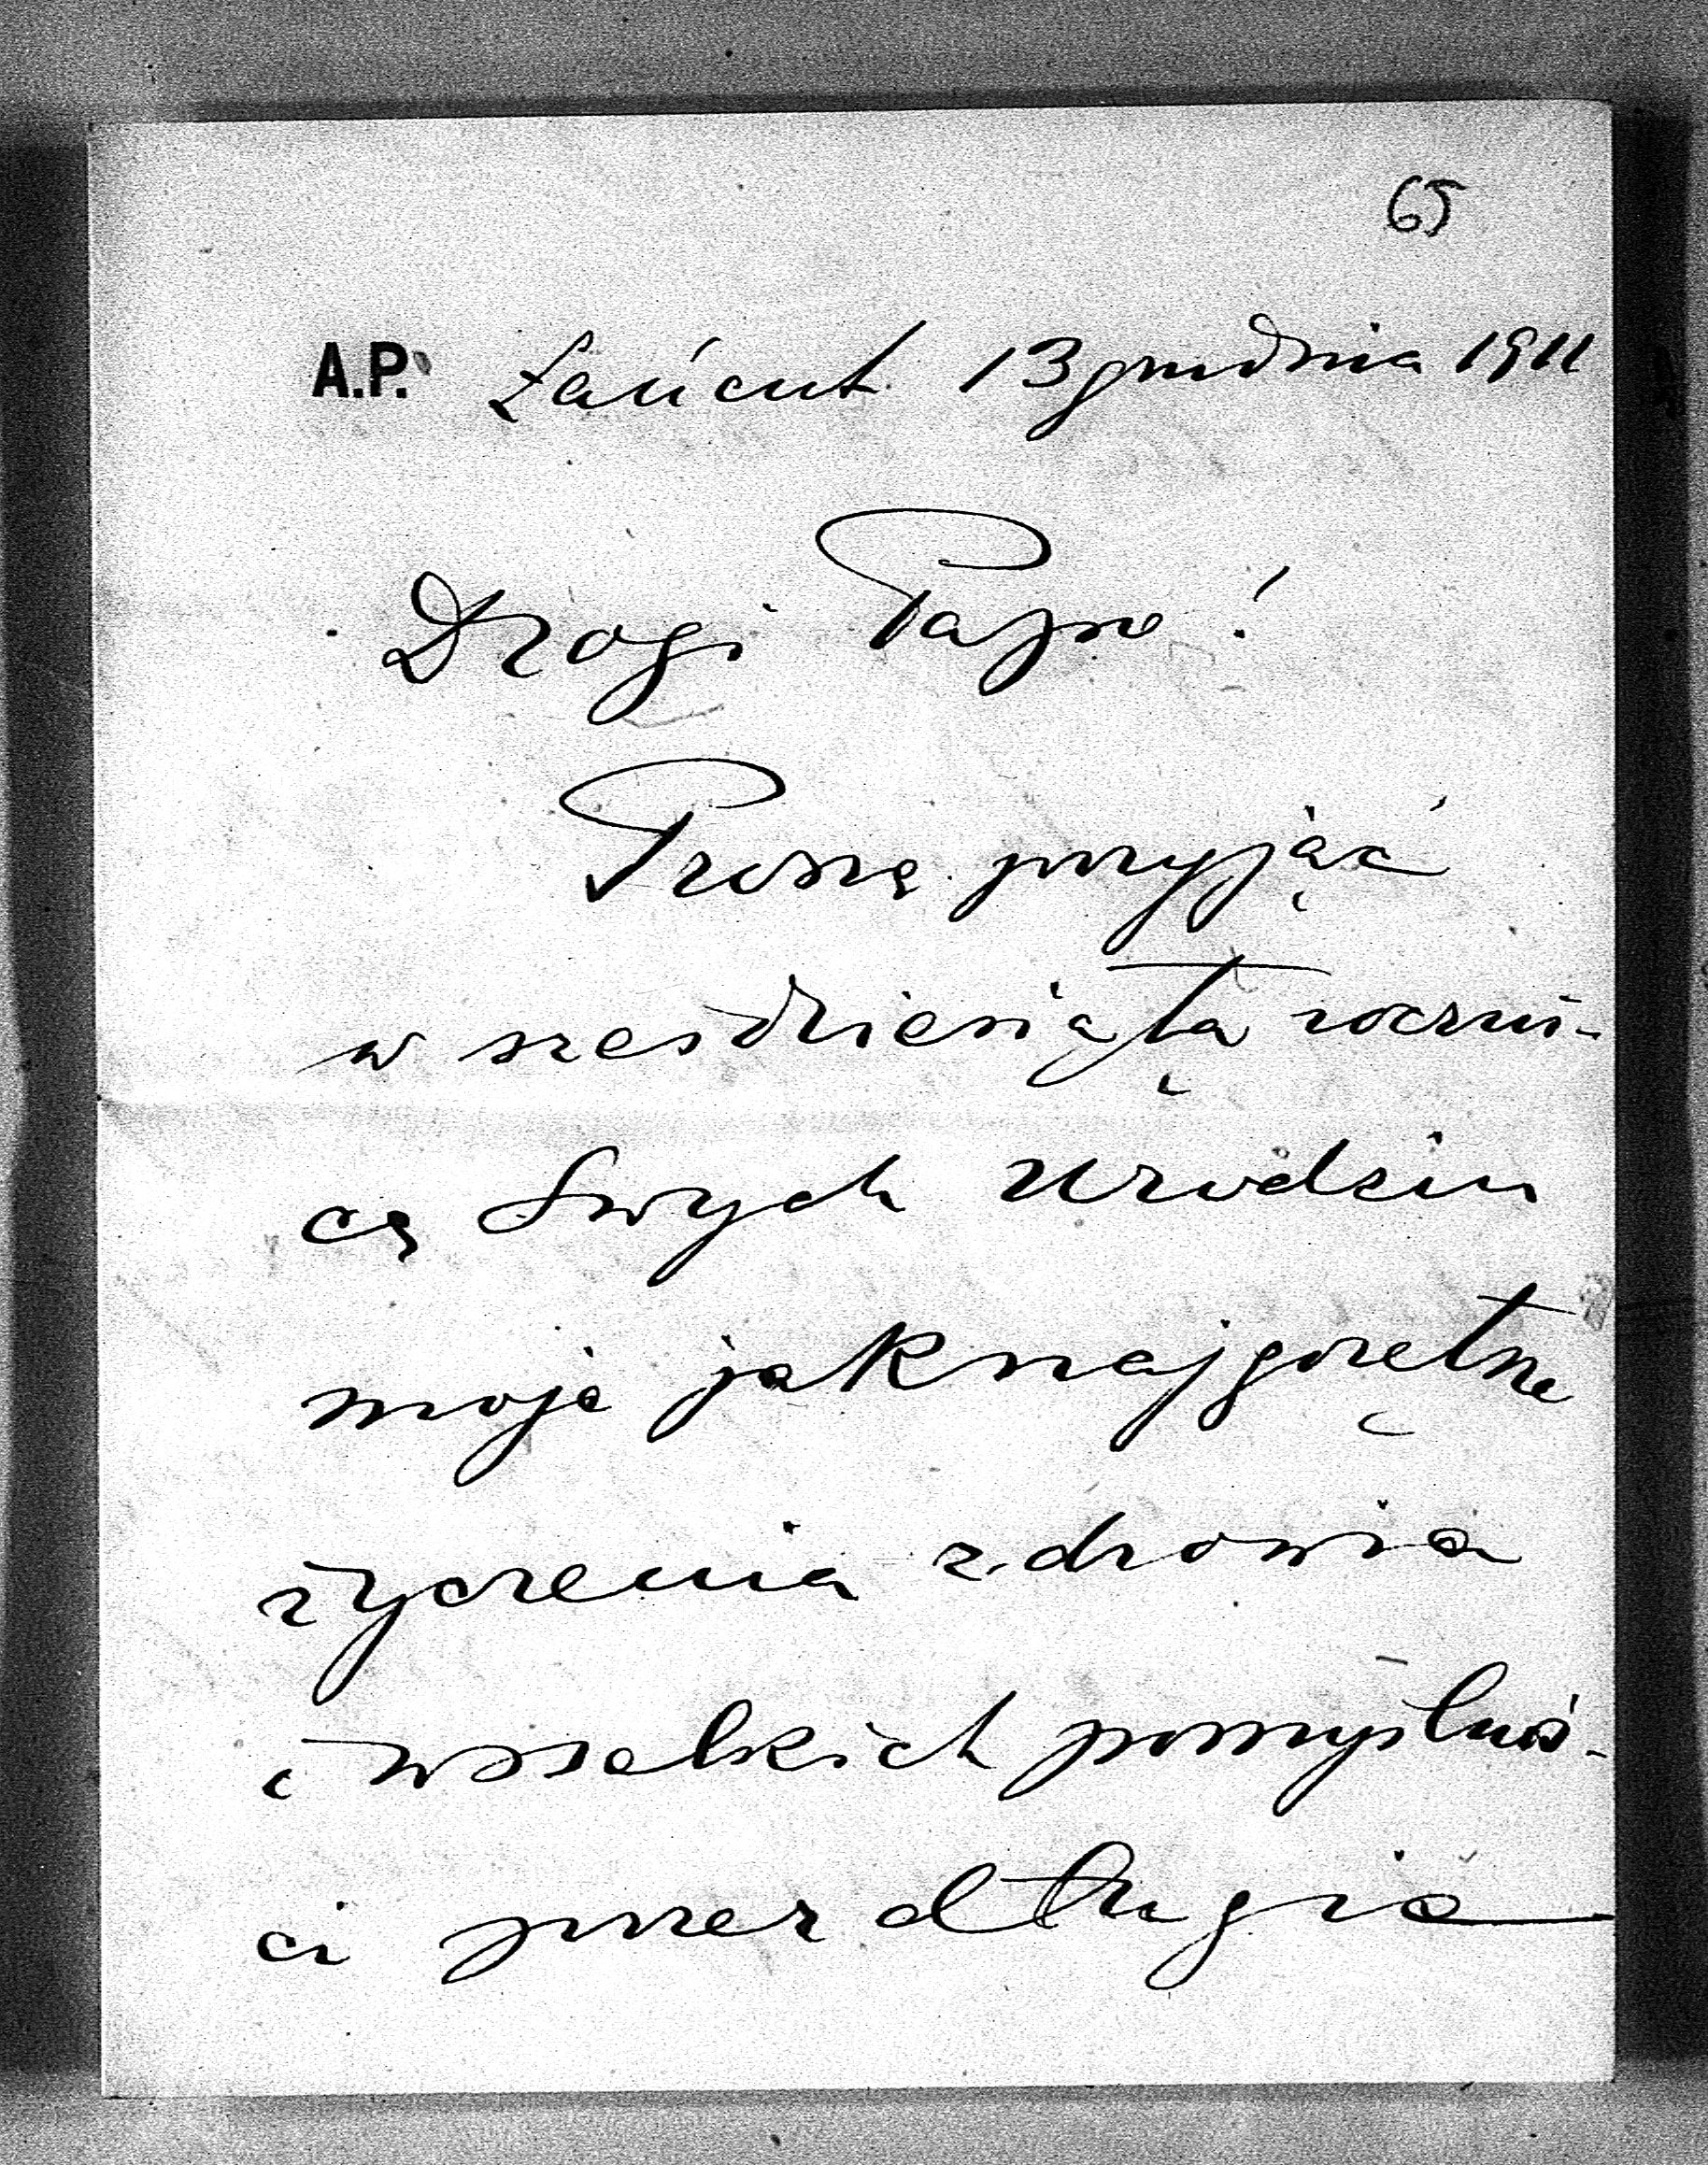 65
A.P. Łańcut 13 grudnia 1911
Drogi Papo!
Proszę przyjąć
w sześdziesiątą roczni-
cę Swych urodzin
moje jaknajgorętsze
życzenia zdrowia
i wszelkich pomyślnoś-
ci przez długie